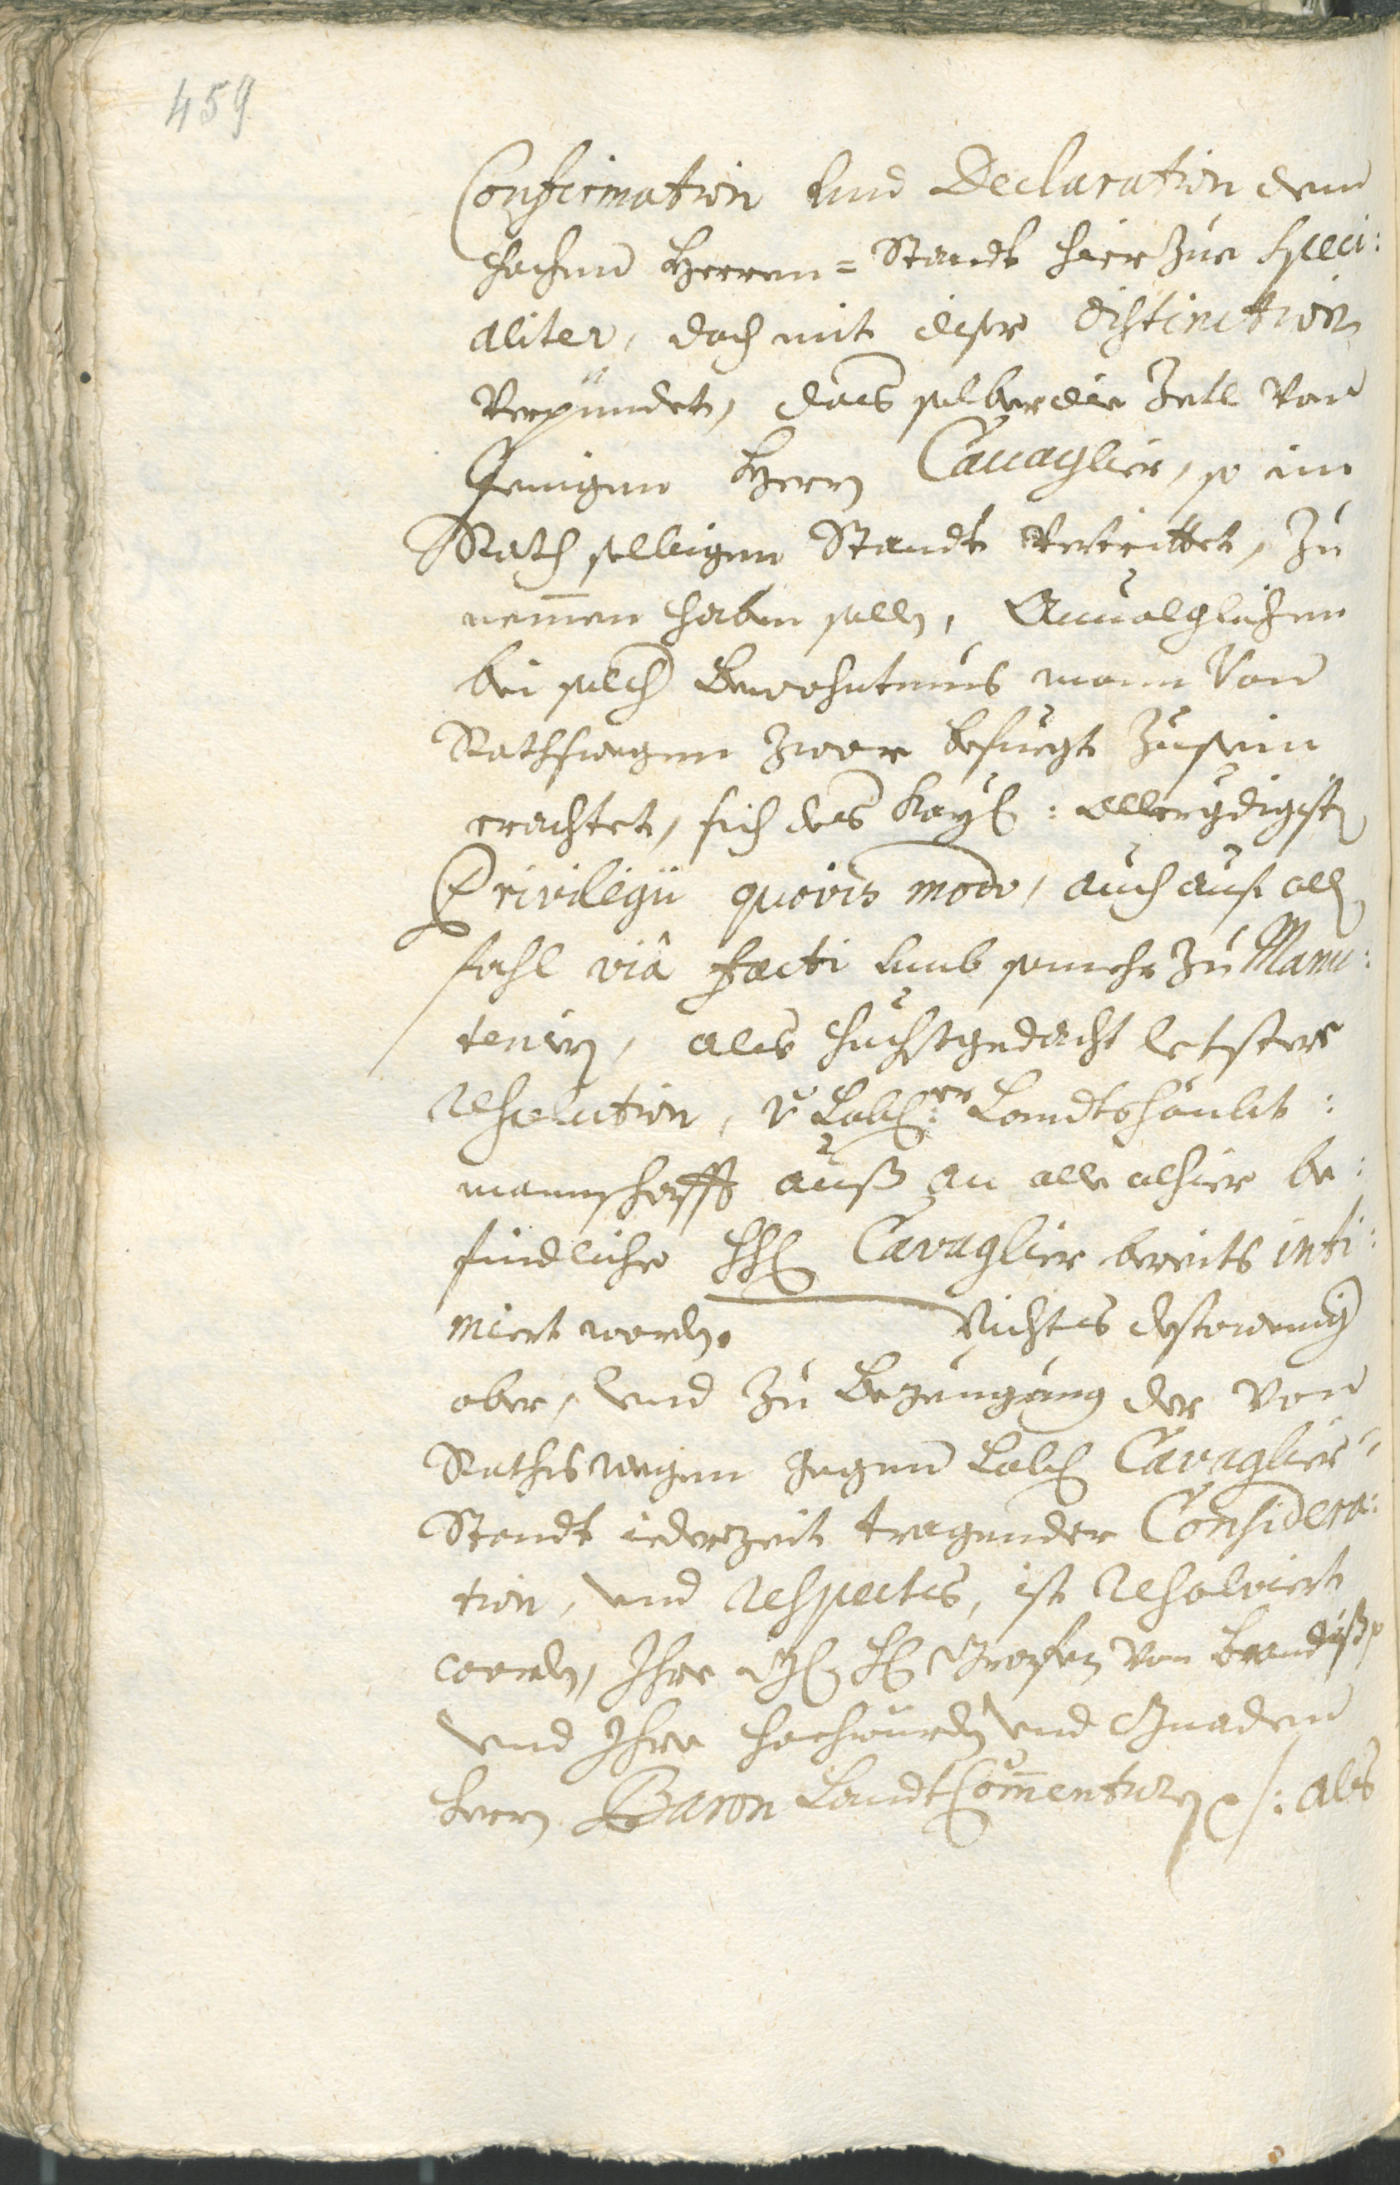 459
Confirmation und Declaration dem
hochen Herren=Standt hierzue speci:
aliter, doch mit diser distinction
verpündet, das selber die Zetl von
Jenigen Herrn Cauaglier, so im
Rath selbigen Standt vertrittet, zu
nemen haben solle,
bei solch Bewohntnus mann von
Rathswegen zwar befuegt zu sein
erachtet, sich des Kayl: allergdigist
Privilegii quovis modo, auch auf all
fahl viâ facti umb somehr zu Manu:
teniern, als höchstgedacht letstere
resolution, v Lobl:er Landtshaubt:
mannschafft auß an alle alhier be:
findliche HH Cavaglier bereits inti:
miert worden. Nichts destowenig
aber, und zu Bezeugung der von
Raths wegen gegen Lobl Cavaglier
Standt iederzeit tragender Considera:
tion, und respects, ist resolviert
worden, Ihre H Grafen von Brandiß
und Ihre Hochwürden und Gnaden
Herrn Baron LandtComenturn /: als